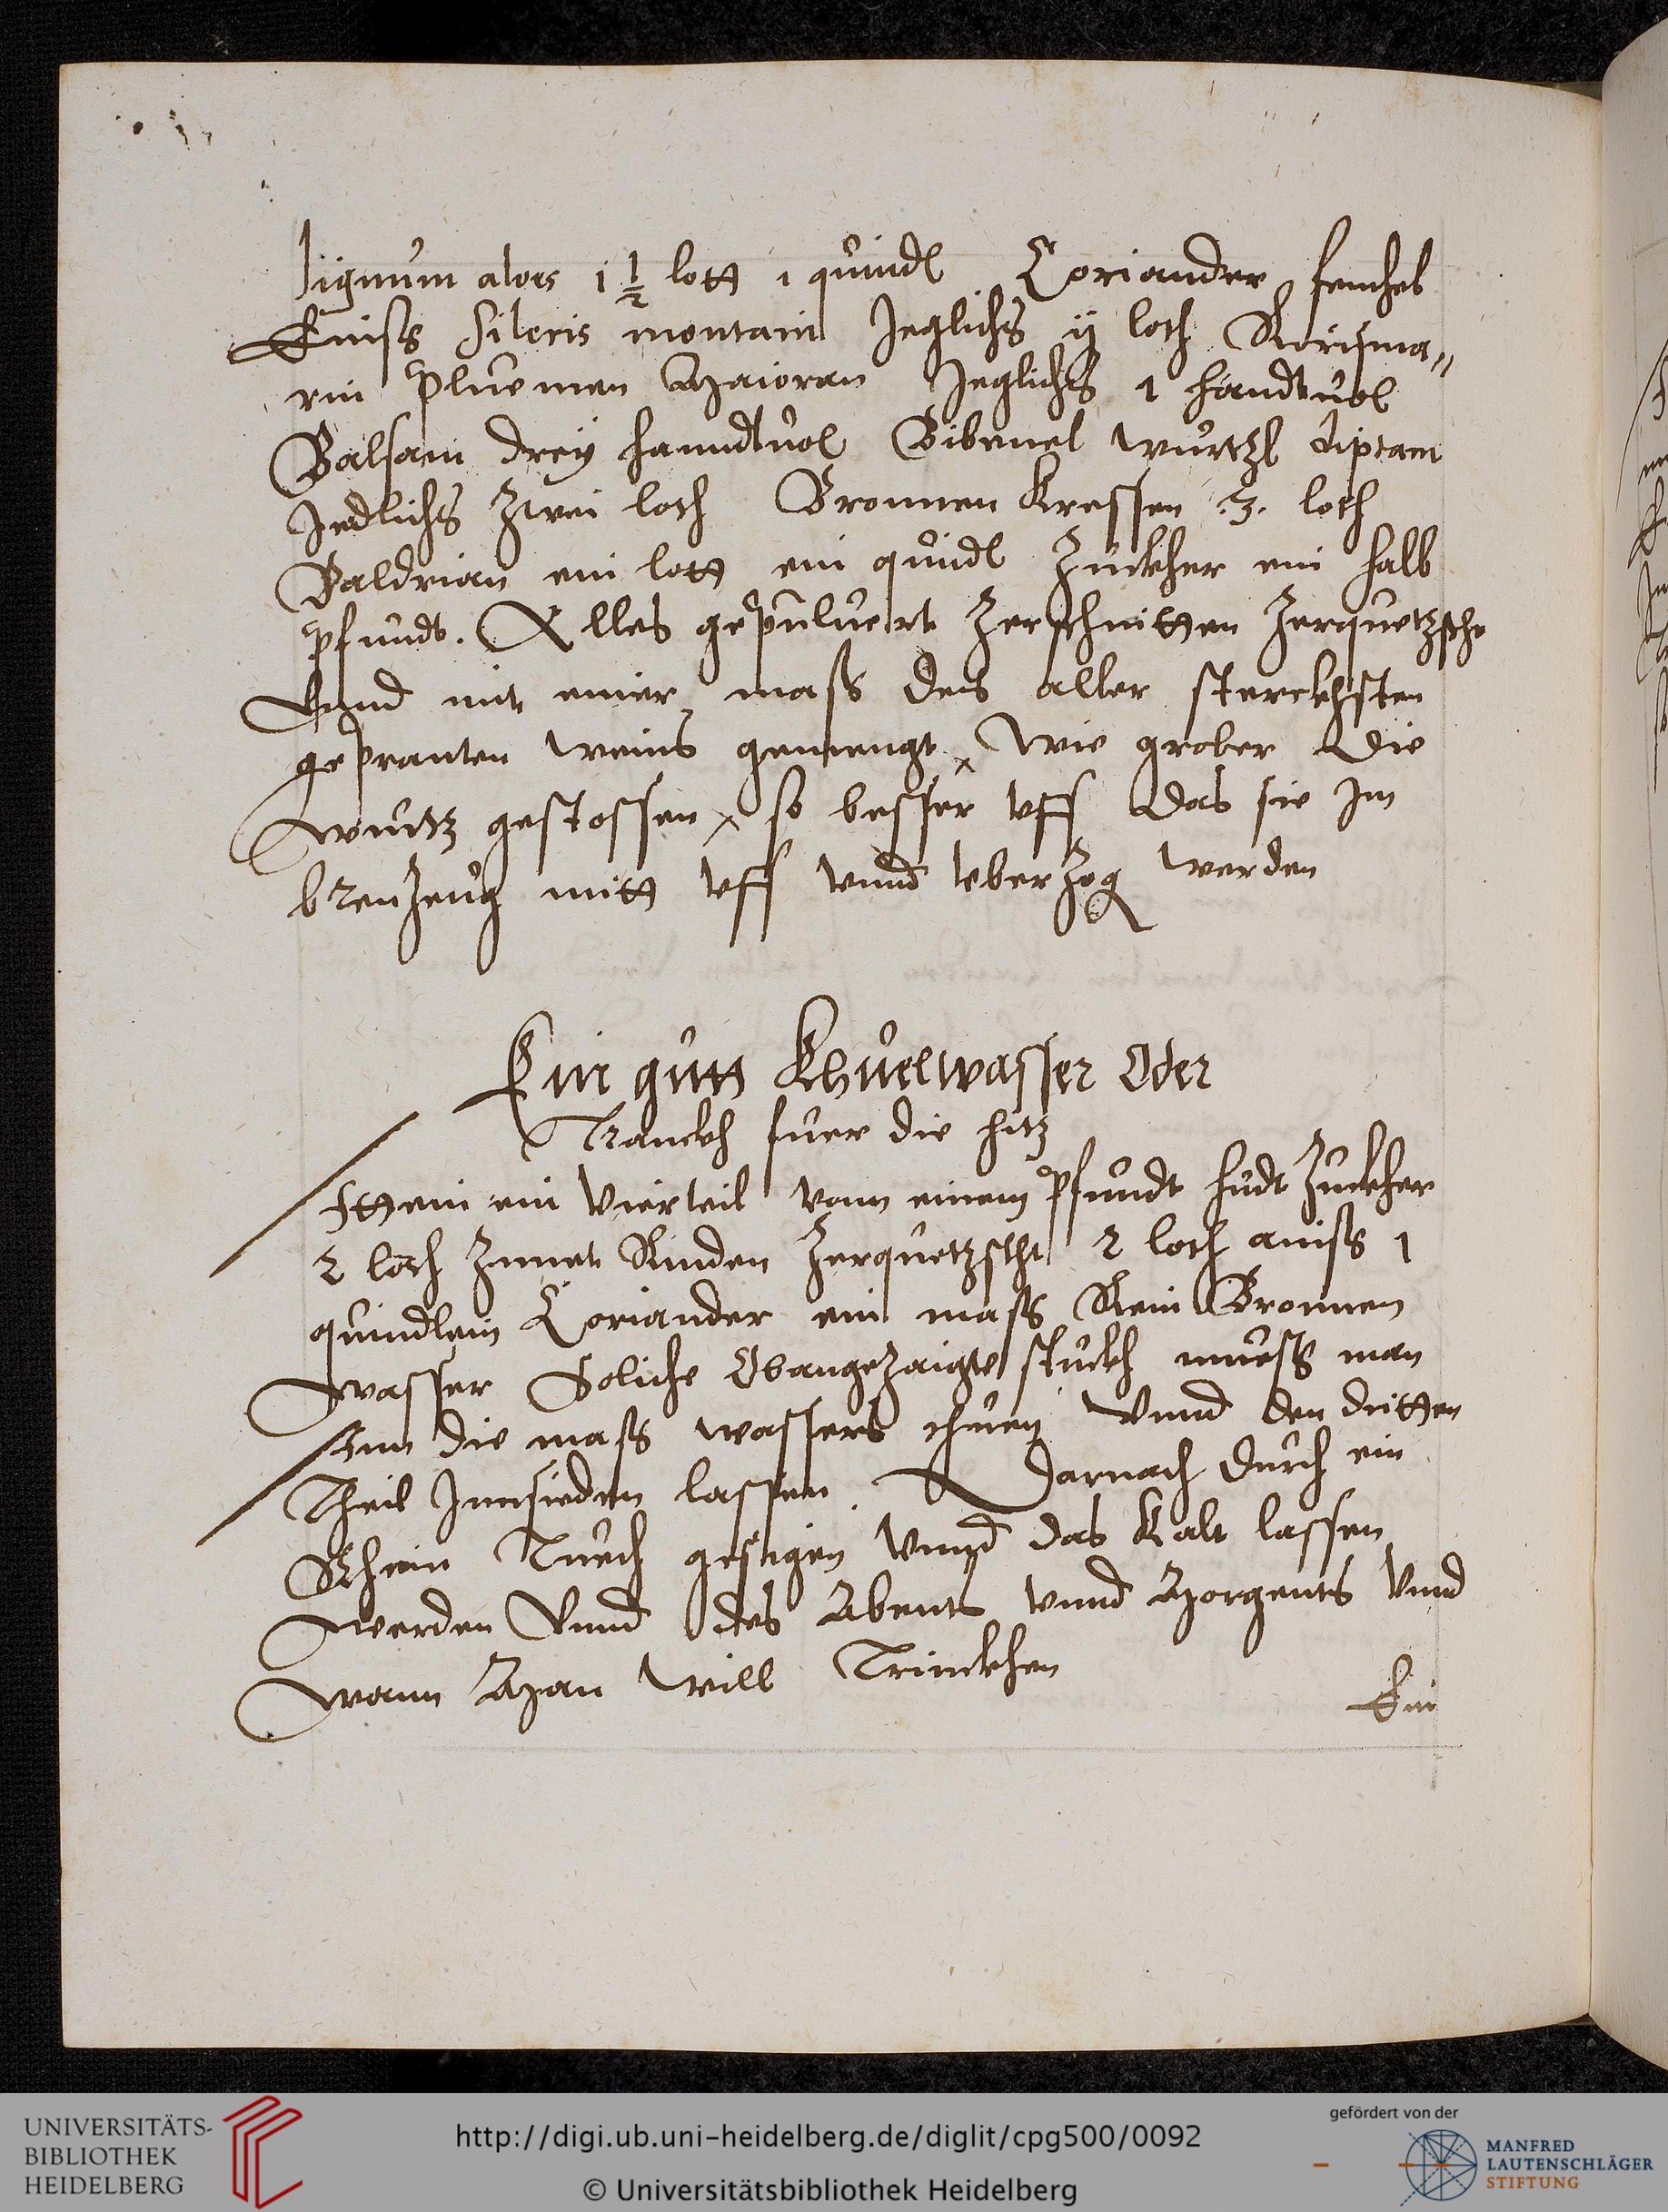 lignum aloes 1 1/2 lott 1 quindl Coriander fenchel
Eniss Sileris montain Jeglichs ij loth Rosißma„
rin pluemen Maioran Jeglichs 1 handtuol
Balsam drey hanndtuol Bibenel wurtzl diptam
Jedlichs zwei loth Bronnen kressen .3. loth
Baldrian ein lott ein quindl Zuckher ein halb
pfundt. Alles gepuluert zerschnitten zerquetzscht
Vnnd mit einer mass des aller sterckhsten
gepranten weins gemengt wie grober die
wurtz gestossen so besser vff das sie Im
brenzeug mitt vff vnnd veberzog werden
Ein gutt Khuelwasser Oder
Tranckh fuer die hitz
Ittem ein Vierteil vonn einem pfundt hudt Zuckher
2 loth Zimet Rinden zerquetzscht 2 loth aniss 1
quindlein Coriander ein mass Rein Bronnen
wasser Soliche Obangezaigte stuckh muess man
Inn die mass wassers thuen Vnnd den dritten
Theil Innsieden lassen. Darnach durch ein
Rhein Tuech gesigen Vnnd das kalt lassen
werden Vnnd des Abents vnnd Morgents Vnnd
wann Man will Trinckhen
Ein
UNIVERSITÄTS-
BIBLIOTHEK
HEIDELBERG
http://digi.ub.uni-heidelberg.de/diglit/cpg500/0092
© Universitätsbibliothek Heidelberg
gefördert von der
MANFRED
LAUTENSCHLÄGER
STIFTUNG